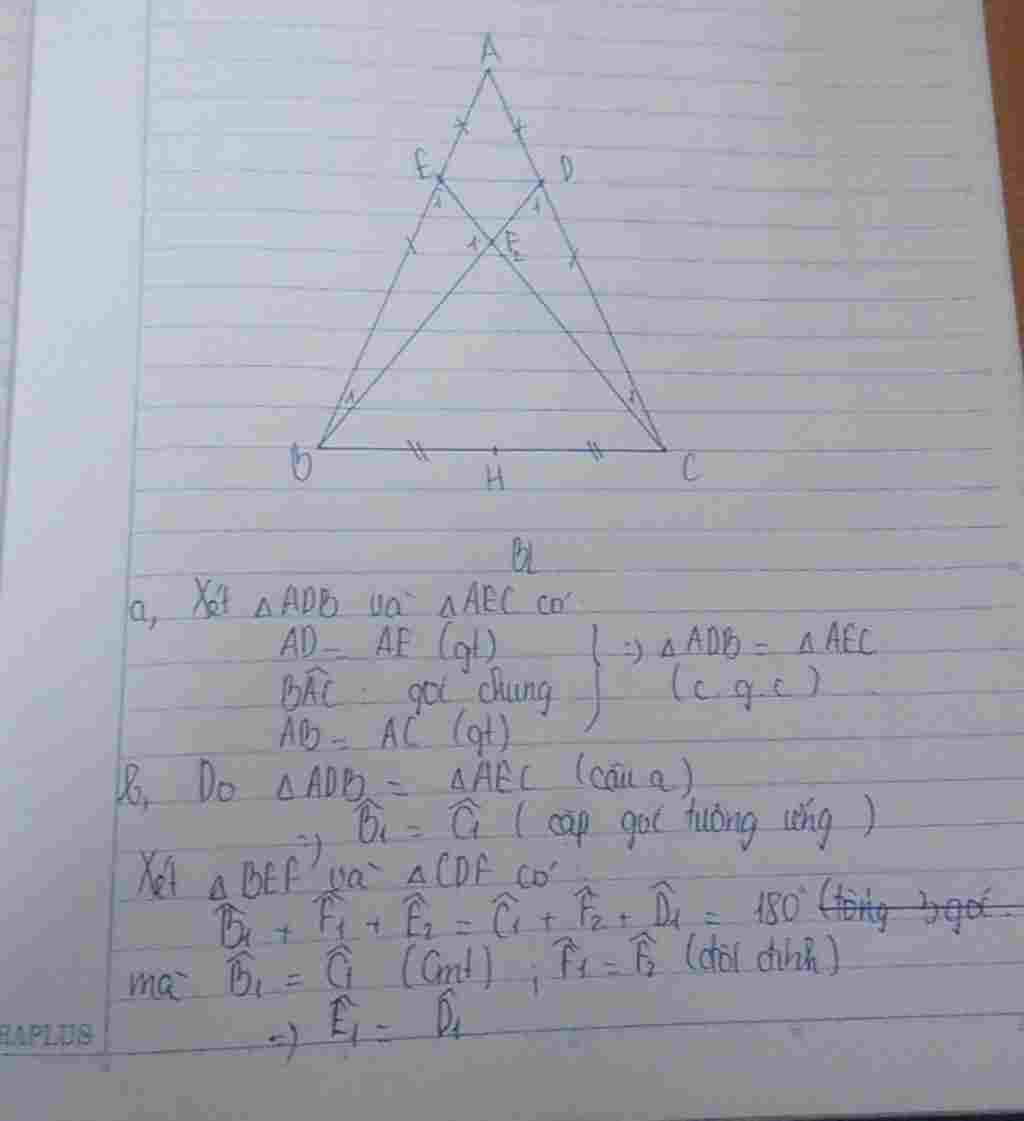 A
E
D
1
1
1
F
2
1
1
B
H
C
BL
a, Xét △ADB và △AEC có
AD = AE (gt)
BÂC : góc chung
AB = AC (gt)
} => △ADB = △AEC
(c g.c)
b, Do △ADB = △AEC (câu a)
=> B̂₁ = Ĉ₁ (cặp góc tương ứng)
Xét △BEF và △CDF có
B̂₁ + F̂₁ + Ê₂ = Ĉ₁ + F̂₂ + D̂₁ = 180° (tổng 3 góc
mà B̂₁ = Ĉ₁ (Cmt) , F̂₁ = F̂₂ (đối đỉnh)
=> Ê₁ = D̂₁
HAPLUS